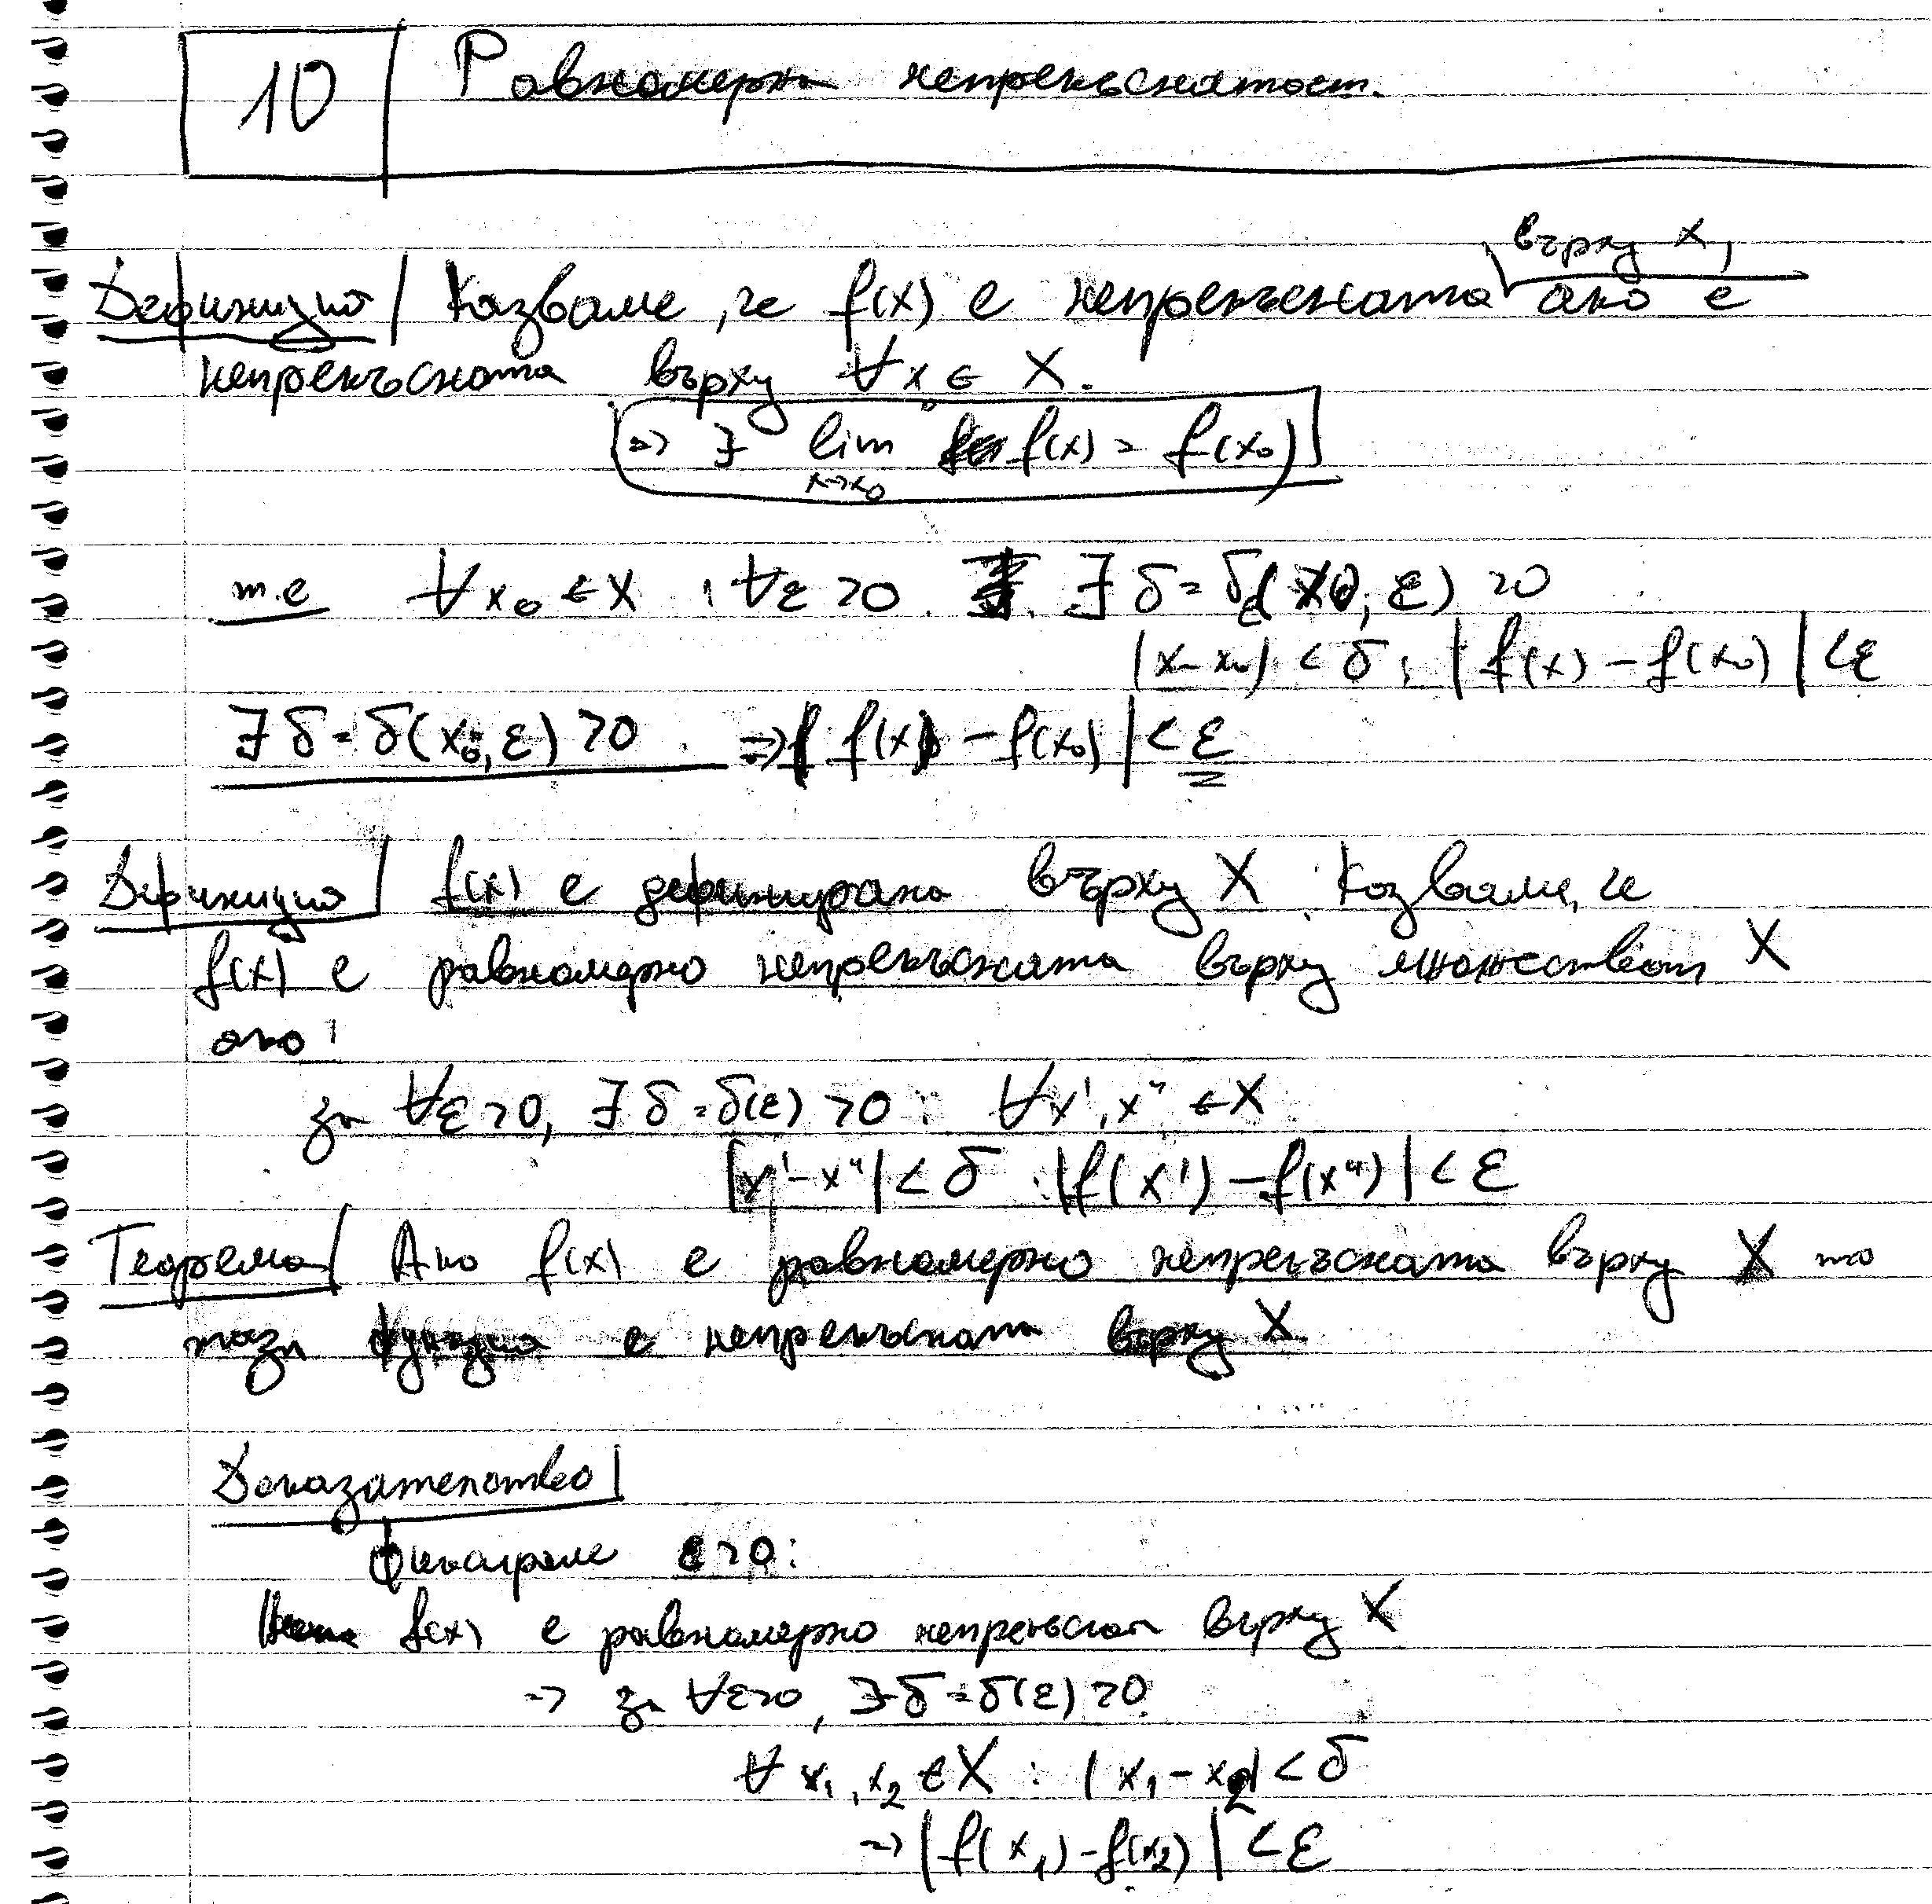 10 Равномерна непрекъснатост.
върху X,
Дефиниция Казваме, че f(x) е непрекъсната ако е
непрекъсната върху ∀x₀ ∈ X.
=> ∃ lim f(x) = f(x₀)
x→x₀
т.е ∀x₀ ∈ X, ∀ε > 0. ∃ δ = δ(x₀, ε) > 0
|x - x₀| < δ: |f(x) - f(x₀)| < ε
∃ δ = δ(x₀, ε) > 0. => | f(x) - f(x₀)| < ε
Дефиниция f(x) е дефинирана върху X. Казваме, че
f(x) е равномерно непрекъсната върху множеството X
ако:
за ∀ε > 0, ∃ δ = δ(ε) > 0: ∀x', x" ∈ X
|x' - x"| < δ : |f(x') - f(x")| < ε
Теорема Ако f(x) е равномерно непрекъсната върху X то
тази функция е непрекъсната върху X
Доказателство
Фиксираме ε > 0:
f(x) е равномерно непрекъсната върху X
=> за ∀ε > 0, ∃ δ = δ(ε) > 0
∀ x₁, x₂ ∈ X : |x₁ - x₂| < δ
=> |f(x₁) - f(x₂)| < ε